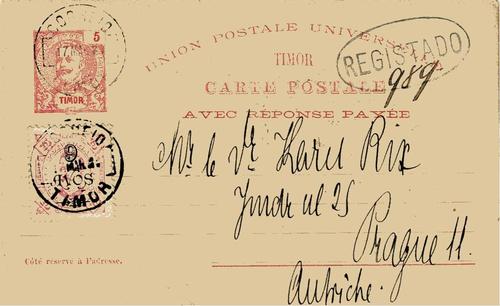 5
UNION POSTALE UNIVERSELLE
TIMOR
REGISTADO
989
CARTE POSTALE
TIMOR
AVEC RÉPONSE PAYÉE
9
AVOS
TIMOR
Mr le Dr Karel Rix
Jindr ul 25
Prague II.
Autriche.
Côté réservé à l'adresse.